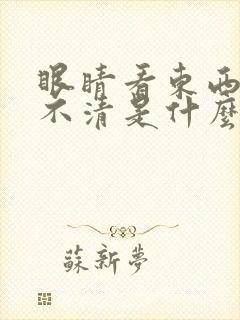 眼睛看東西
不清是什麼
蘇新夢